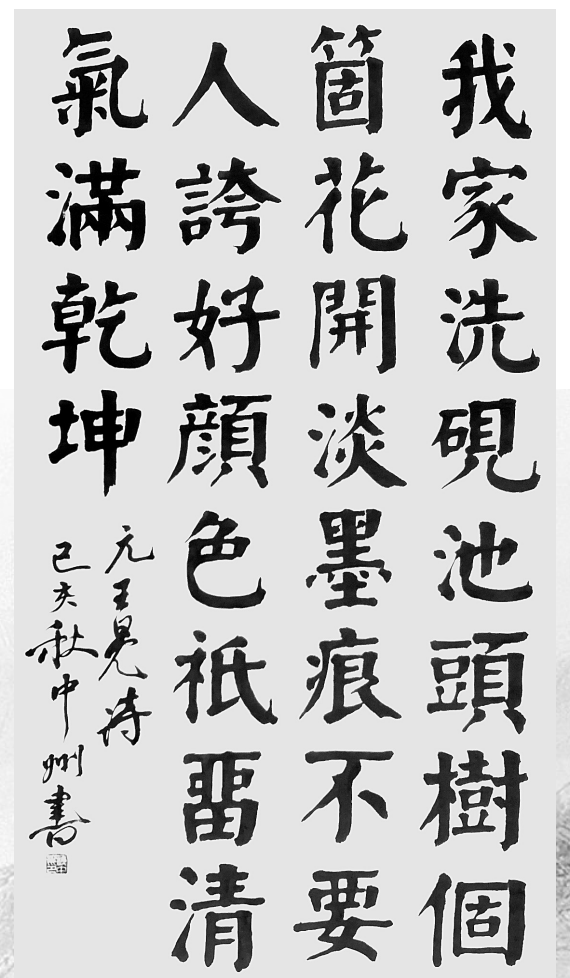 我家洗硯池頭樹個
箇花開淡墨痕不要
人誇好顔色祇畱清
氣滿乾坤
元王冕詩
己亥秋中州書